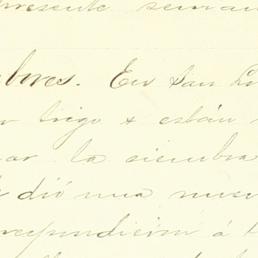 presente seman
bores. En San Lo
trigo y están
ar la siembra
dió una nue
respondieron á